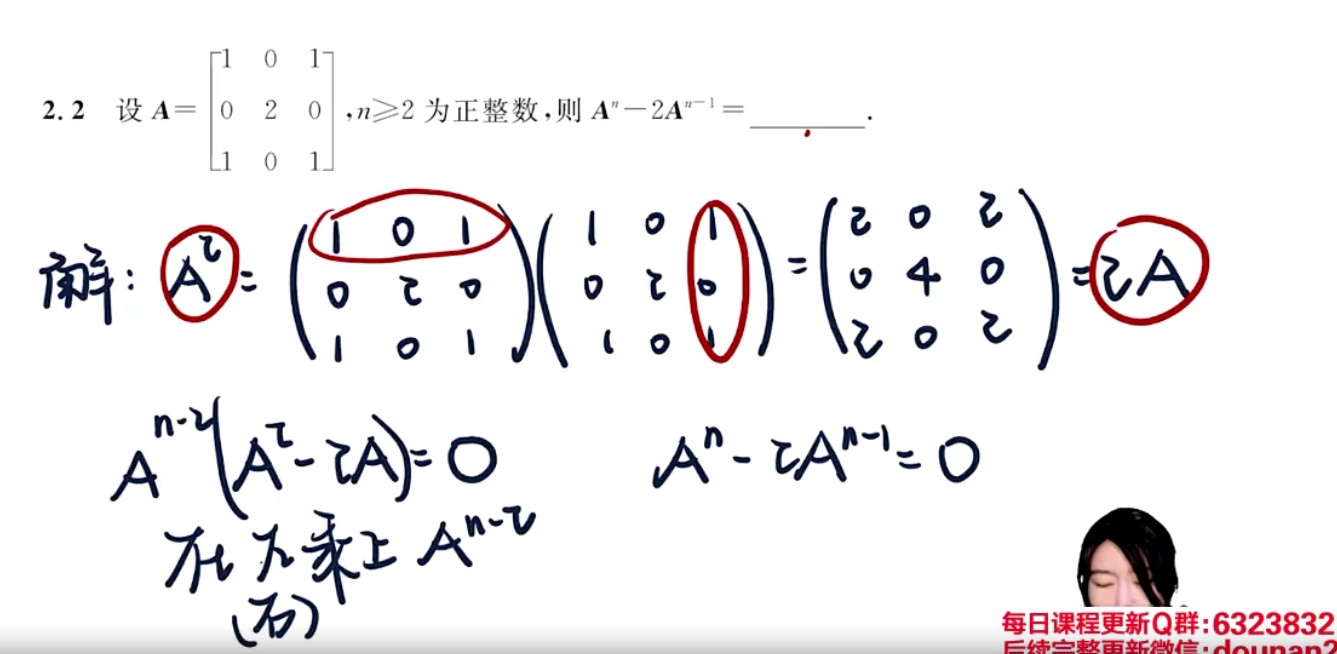 2.2 设 A=[1 0 1; 0 2 0; 1 0 1], n≥2 为正整数,则 Aⁿ-2Aⁿ⁻¹=______.
解: A²= (1 0 1; 0 2 0; 1 0 1)(1 0 1; 0 2 0; 1 0 1) = (2 0 2; 0 4 0; 2 0 2) = 2A
Aⁿ⁻²(A²-2A)=0 Aⁿ-2Aⁿ⁻¹=0
在左乘上 Aⁿ⁻²
(右)
每日课程更新Q群:6323832
后续完整更新微信:dounan2